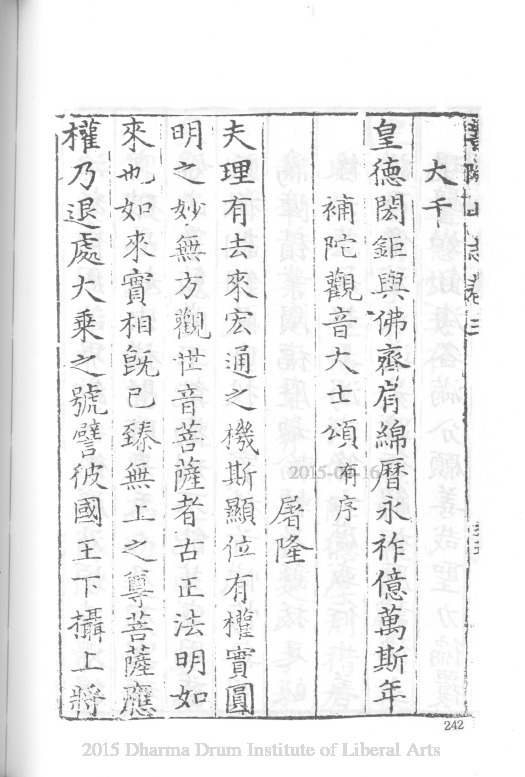 大千
皇德閎鉅與佛齊肩綿曆永祚億萬斯年
補陀觀音大士頌有序
屠隆
夫理有去來宏通之機斯顯位有權實圓
明之妙無方觀世音菩薩者古正法明如
來也如來實相旣已臻無上之尊菩薩應
權乃退處大乘之號譬彼國王下攝上將
2015-04-16
242
2015 Dharma Drum Institute of Liberal Arts